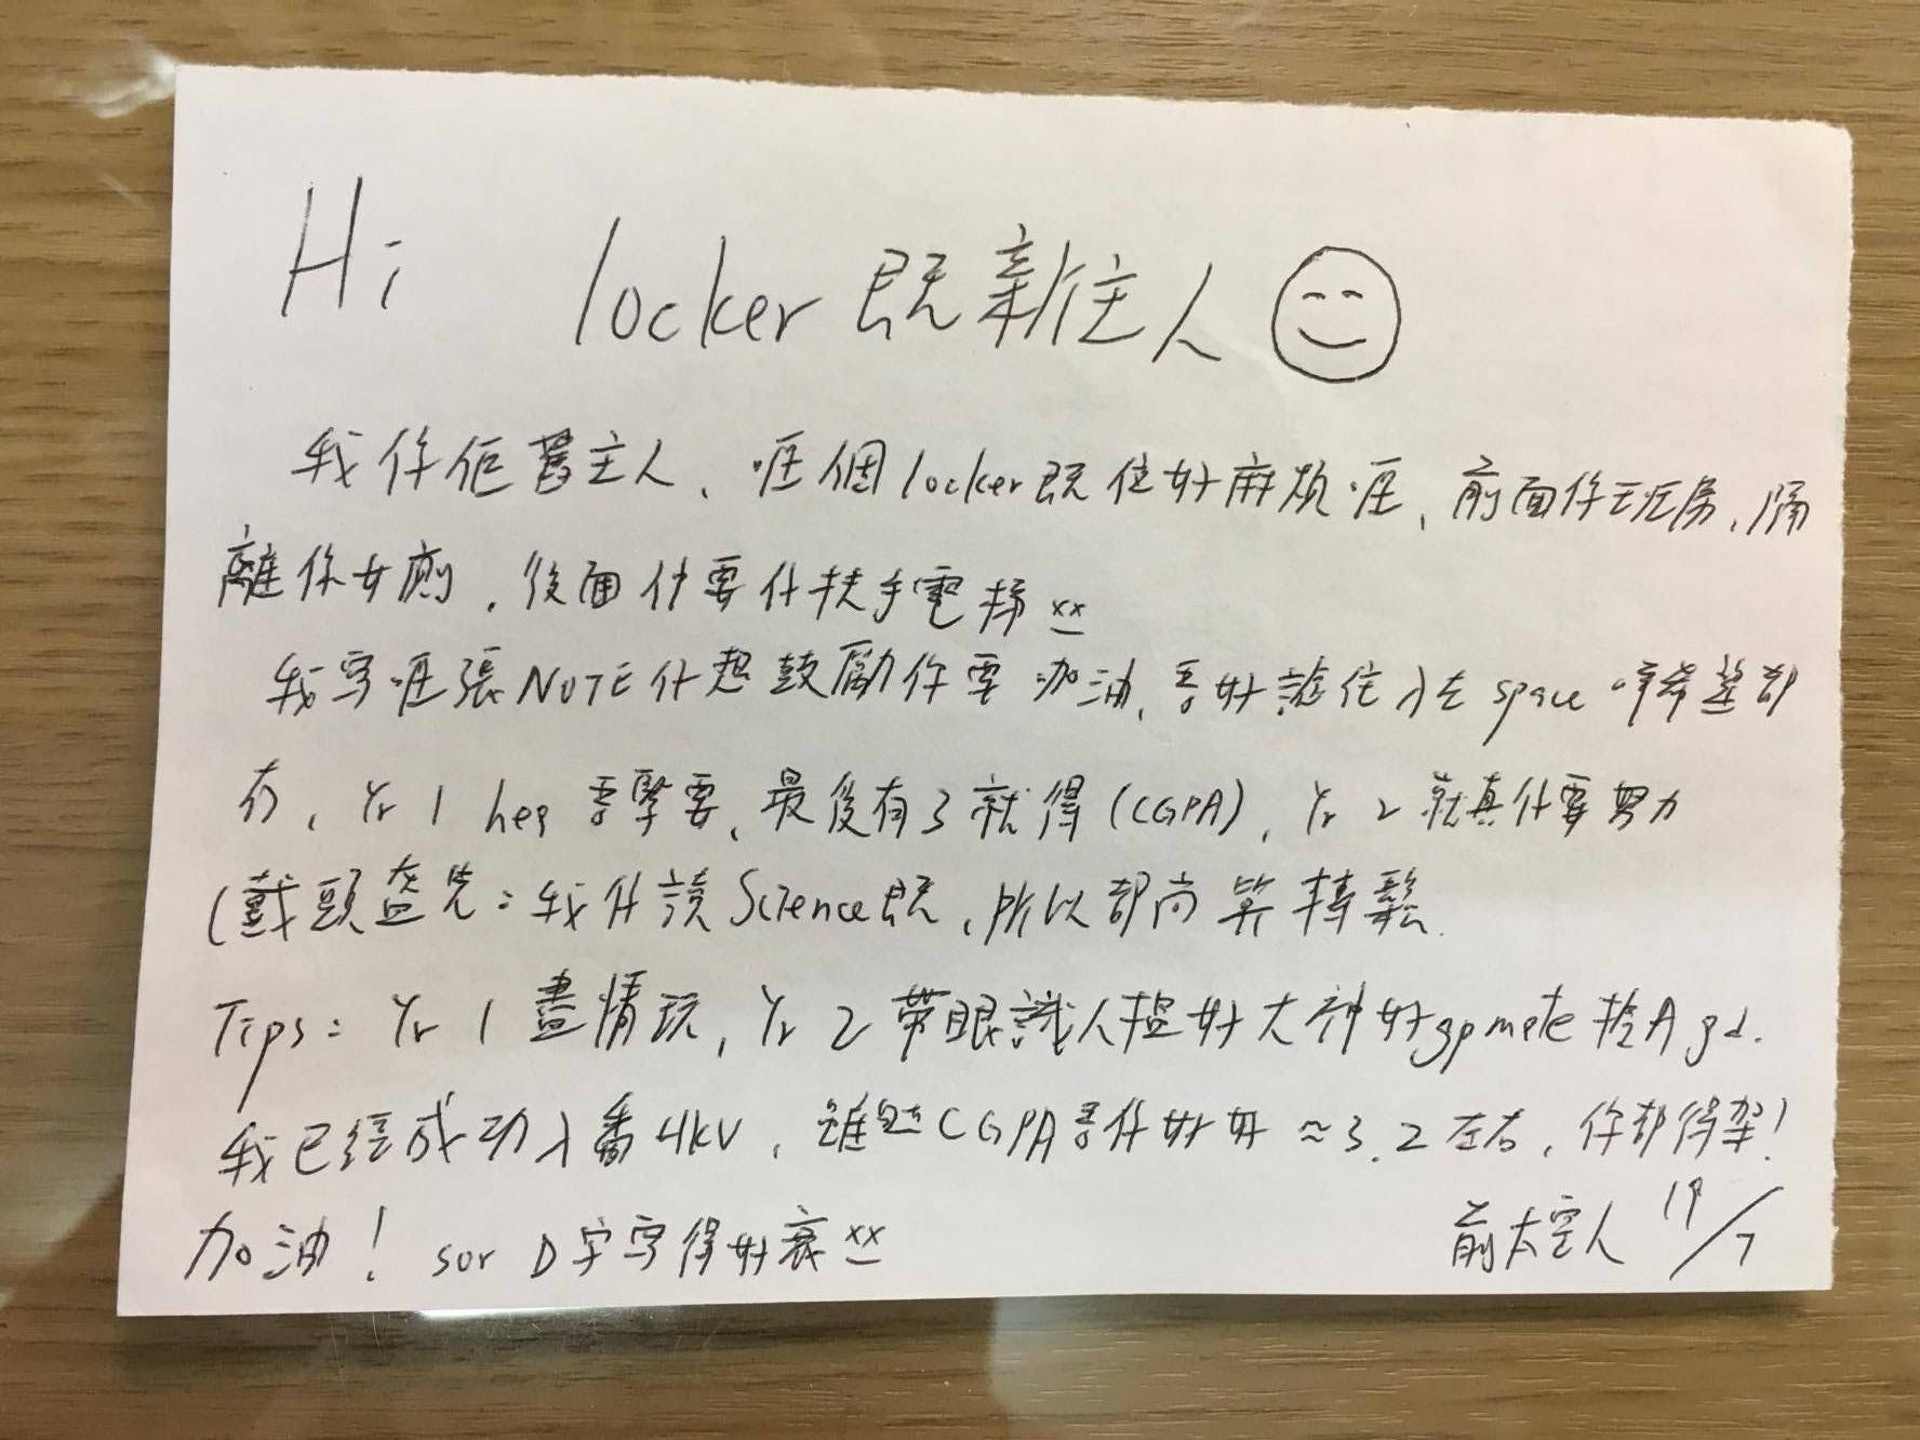 Hi locker 既新住人
我係佢舊主人、呢個locker既位好麻煩呢、前面係班房、隔
離係女廁，後面仲要係扶手電梯
我寫呢張NOTE係想鼓勵你要加油、唔好諗住入左space 咩希望都
冇，Yr 1 hea 唔緊要、最後有3就得(CGPA)，Yr 2 就真係要努力
(戴頭盔先：我係讀Science既，所以都尚算輕鬆.
Tips: Yr 1 盡情玩, Yr 2 帶眼識人搵好大神好gp mate 拎A gd.
我已經成功入番HKU，雖然CGPA唔係好好≈3.2左右，你都得架!
加油! sor D字寫得好衰
前太空人 19/7